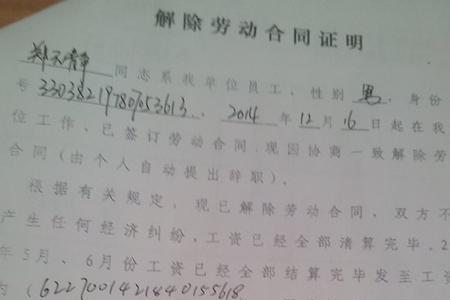 解除劳动合同证明
同志系我单位员工,性别 男,身份
号 2014 年 12 月 16 日起在我
位工作,已签订劳动合同.现因协商一致解除劳
合同(由个人自动提出辞职)。
根据有关规定,现已解除劳动合同,双方不
产生任何经济纠纷,工资已经全部清算完毕.2
年5月、6月份工资已经全部结算完毕发至工资
为(6227001421840155618